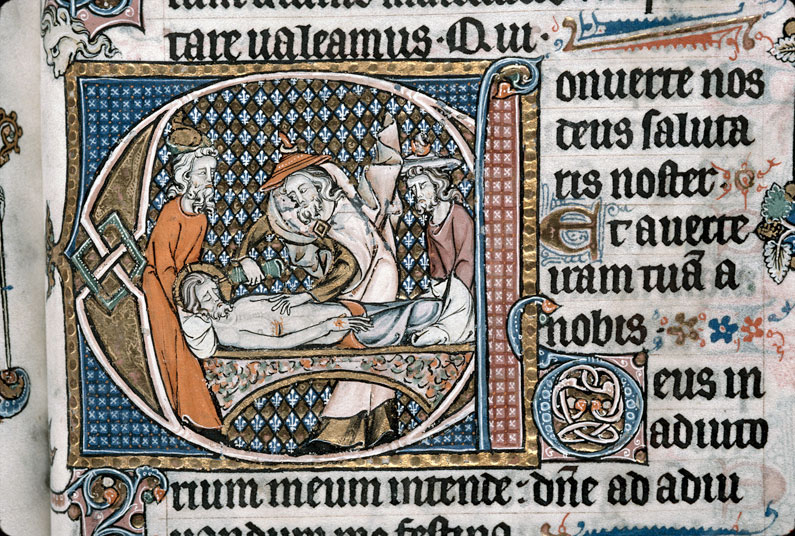 tare ualeamus · Qui ·
Conuerte nos
deus saluta
ris noster ·
Et auerte
iram tuā a
nobis ·
Deus in
adiuto
rium meum intende : dn̄e ad adiu
uandum me festina